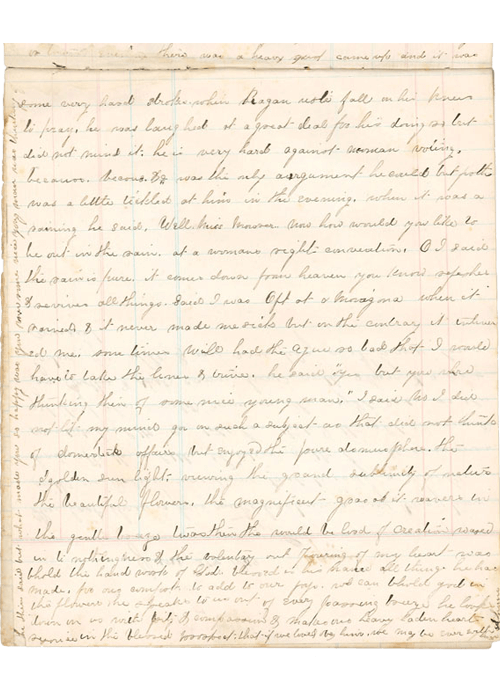 there was a heavy gust came up and it was
some very hard strokes, when Reagan would fall on his knees
to pray. he was laughed at a great deal for his doing so but
did not mind it. he is very hard against woman voting,
because. was the only argument he could but forth
was a little tickled at him in the evening. when it was a
raining he said, Well Miss now how would you like to
be out in the rain. at a womans rights convention. O I said
the rain is pure. it comes down from heaven you know refreshes
& revives all things. Said I was Oft at when it
rained & it never made me sick but on the contrary it
ed me. some times Will had the ague so bad that I would
have to take the lines & drive. he said "Yes but you were
thinking then of some nice young man." I said No I did
not let my mind go on such a subject as that did not think
of domestick affairs but enjoyed the pure atmosphere. the
golden sun light viewing the grand sublimity of nature
the beautiful flowers, the magnificent grass as it waves in
the gentle the would be lord of Creation
in to nothingness & the voluntary out pouring of my heart was
behold the hand work of God. blessed is his name all things he has
made, for our comfort to add to our joys. we can behold god in
the flowers he speaks to us out of every passing breeze he looks
down on us with pity & compassion & makes our heavy laden hearts
rejoice in the blessed prospect; that if we live by him, we may be ever with
he then said but what made you so happy was you